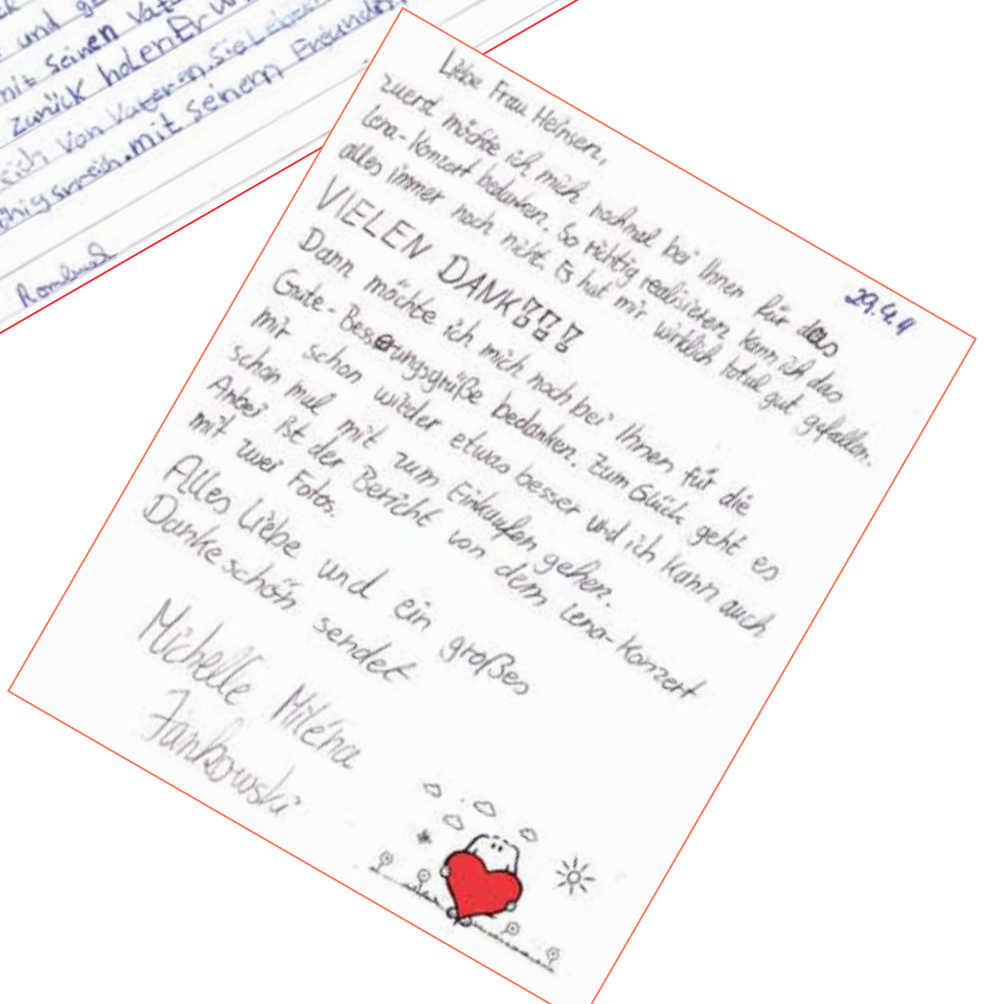 und
mit seinen Vater
zurück holen Er
sich von Vater an. Sie Leben
mit seinem Freund
29.4.11
Liebe Frau Heinsen,
zuerst möchte ich mich nochmal bei Ihnen für das
Lena-Konzert bedanken. So richtig realisieren kann ich das
alles immer noch nicht. Es hat mir wirklich total gut gefallen.
VIELEN DANK!!!
Dann möchte ich mich noch bei Ihnen für die
Gute-Besserungsgrüße bedanken. Zum Glück geht es
mir schon wieder etwas besser und ich kann auch
schon mal mit zum Einkaufen gehen.
Anbei ist der Bericht von dem Lena-Konzert
mit zwei Fotos.
Alles Liebe und ein großes
Dankeschön sendet
Michelle Miléna
Jankowski